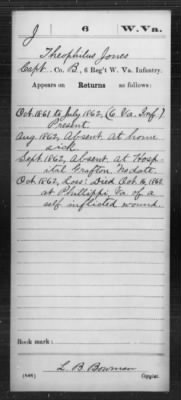 J 6 W.Va.
Theophilus Jones
Capt., Co. B, 6 Reg't W. Va. Infantry.
Appears on Returns as follows:
Oct. 1861 to July 1862, (Co. Va. Inf.)
Present.
Aug. 1862, Absent at home
sick.
Sept. 1862, Absent at Hosp-
ital Grafton, No date.
Oct. 1862, Loss: Died Oct. 16, 1862
at Phillippi, Va. of a
self inflicted wound.
Book mark:
L. B. Bowman
Copyist.